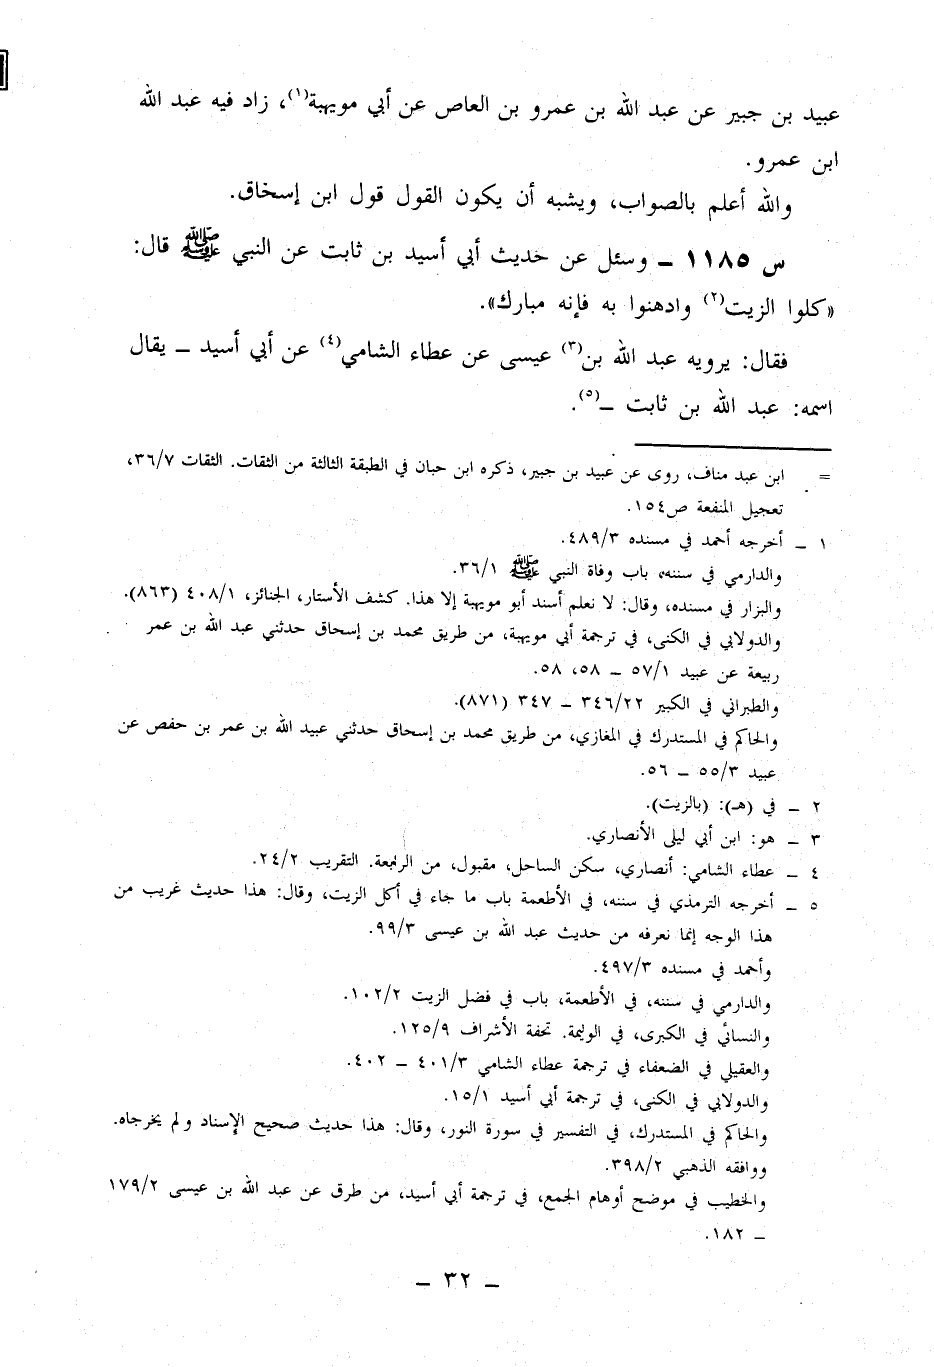 عبيد بن جبير عن عبد الله بن عمرو بن العاص عن أبي مويهبة(١)، زاد فيه عبد الله
ابن عمرو.
والله أعلم بالصواب، ويشبه أن يكون القول قول ابن إسحاق.
س ١١٨٥ ــ وسئل عن حديث أبي أسيد بن ثابت عن النبي ﷺ قال:
«كلوا الزيت(٢) وادهنوا به فإنه مبارك».
فقال: يرويه عبد الله بن(٣) عيسى عن عطاء الشامي(٤) عن أبي أسيد ــ يقال
اسمه: عبد الله بن ثابت ــ(٥).
= ابن عبد مناف، روى عن عبيد بن جبير، ذكره ابن حبان في الطبقة الثالثة من الثقات. الثقات ٣٦/٧،
تعجيل المنفعة ص١٥٤.
١ ــ أخرجه أحمد في مسنده ٤٨٩/٣.
والدارمي في سننه، باب وفاة النبي ﷺ ٣٦/١.
والبزار في مسنده، وقال: لا نعلم أسند أبو مويهبة إلا هذا. كشف الأستار، الجنائز، ٤٠٨/١ (٨٦٣).
والدولابي في الكنى، في ترجمة أبي مويهبة، من طريق محمد بن إسحاق حدثني عبد الله بن عمر
ربيعة عن عبيد ٥٧/١ ــ ٥٨، ٥٨.
والطبراني في الكبير ٣٤٦/٢٢ ــ ٣٤٧ (٨٧١).
والحاكم في المستدرك في المغازي، من طريق محمد بن إسحاق حدثني عبيد الله بن عمر بن حفص عن
عبيد ٥٥/٣ ــ ٥٦.
٢ ــ في (هـ): (بالزيت).
٣ ــ هو: ابن أبي ليلى الأنصاري.
٤ ــ عطاء الشامي: أنصاري، سكن الساحل، مقبول، من الرابعة. التقريب ٢٤/٢.
٥ ــ أخرجه الترمذي في سننه، في الأطعمة باب ما جاء في أكل الزيت، وقال: هذا حديث غريب من
هذا الوجه إنما نعرفه من حديث عبد الله بن عيسى ٩٩/٣.
وأحمد في مسنده ٤٩٧/٣.
والدارمي في سننه، في الأطعمة، باب في فضل الزيت ١٠٢/٢.
والنسائي في الكبرى، في الوليمة. تحفة الأشراف ١٢٥/٩.
والعقيلي في الضعفاء في ترجمة عطاء الشامي ٤٠١/٣ ــ ٤٠٢.
والدولابي في الكنى، في ترجمة أبي أسيد ١٥/١.
والحاكم في المستدرك، في التفسير في سورة النور، وقال: هذا حديث صحيح الإسناد ولم يخرجاه.
ووافقه الذهبي ٣٩٨/٢.
والخطيب في موضح أوهام الجمع، في ترجمة أبي أسيد، من طرق عن عبد الله بن عيسى ١٧٩/٢
ــ ١٨٢.
ــ ٣٢ ــ